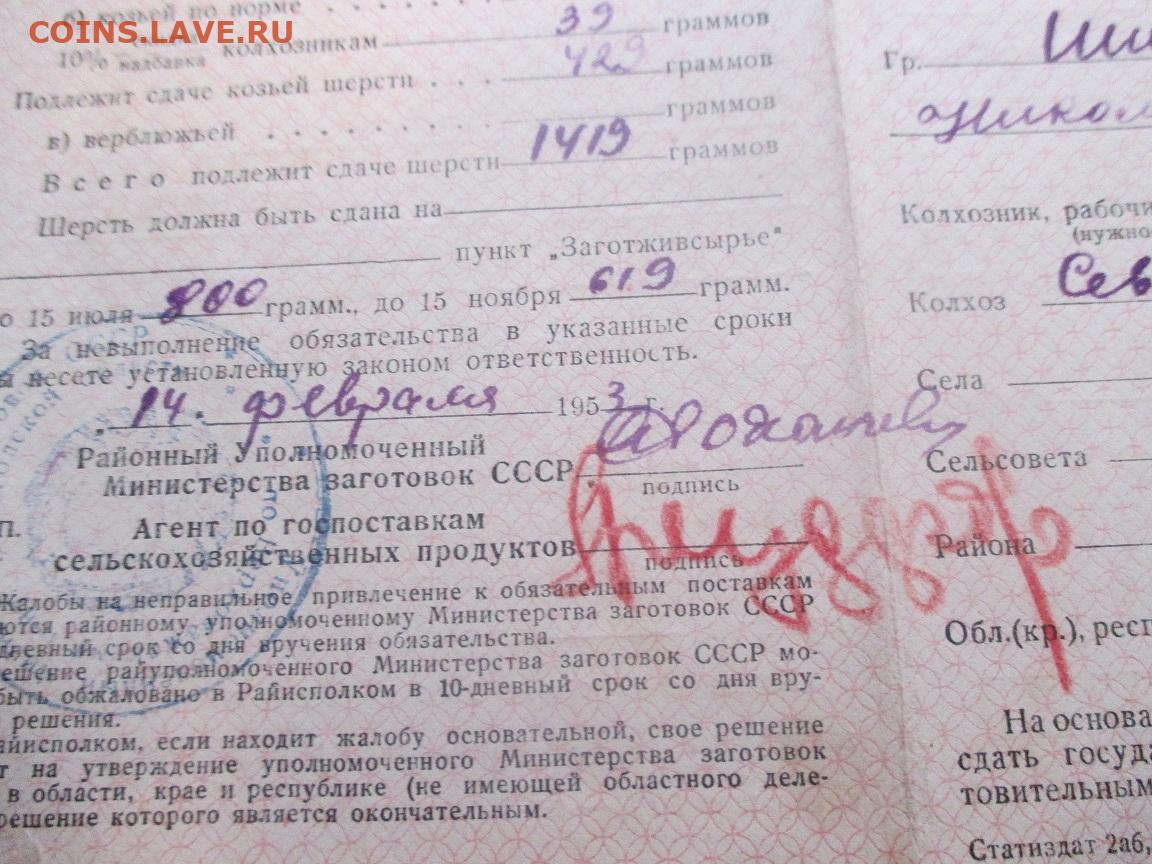 COINS.LAVE.RU
б) козьей по норме . . . . . . 39 граммов
10% надбавка колхозникам 429 граммов
Подлежит сдаче козьей шерсти . . . граммов
в) верблюжьей . . . . . . . . граммов
Всего подлежит сдаче шерсти 1419 граммов
Шерсть должна быть сдана на
пункт „Заготживсырье"
о 15 июля 800 грамм., до 15 ноября 619 грамм.
За невыполнение обязательства в указанные сроки
ы несете установленную законом ответственность.
„14. февраля 1953 г.
Районный Уполномоченный
Министерства заготовок СССР
подпись
П. Агент по госпоставкам
сельскохозяйственных продуктов
подпись
Жалобы на неправильное привлечение к обязательным поставкам
ются районному уполномоченному Министерства заготовок СССР
дневный срок со дня вручения обязательства.
ешение райуполномоченного Министерства заготовок СССР мо-
быть обжаловано в Райисполком в 10-дневный срок со дня вру-
решения.
айисполком, если находит жалобу основательной, свое решение
т на утверждение уполномоченного Министерства заготовок
в области, крае и республике (не имеющей областного деле-
решение которого является окончательным.
Гр. Ши
Никол
Колхозник, рабочи
(нужно
Колхоз Сев
Села
Сельсовета
Района
Обл.(кр.), респ
На основа
сдать госуда
товительным
Статиздат 2аб,